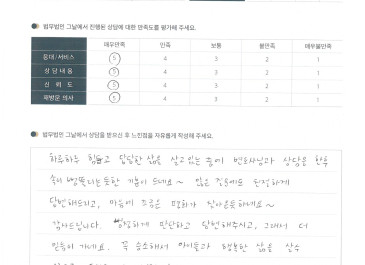 법무법인 그날에서 진행된 상담에 대한 만족도를 평가해 주세요.
매우만족 만족 보통 불만족 매우불만족
응대/서비스 5 4 3 2 1
상담내용 5 4 3 2 1
신뢰도 5 4 3 2 1
재방문 의사 5 4 3 2 1
법무법인 그날에서 상담을 받으신 후 느낀점을 자유롭게 작성해 주세요.
하루하루 힘들고 답답한 삶을 살고있는 중에 변호사님과 상담은 한후
속이 뻥뚫리는듯한 기분이 드네요~ 많은 질문에도 친절하게
답변해드리고, 마음에 조금은 평화가 찾아온듯하네요~
감사드립니다. 냉정하게 판단하고 답변해주시고, 그래서 더
믿음이 가네요. 꼭 승소해서 아이들과 행복한 삶을 살수